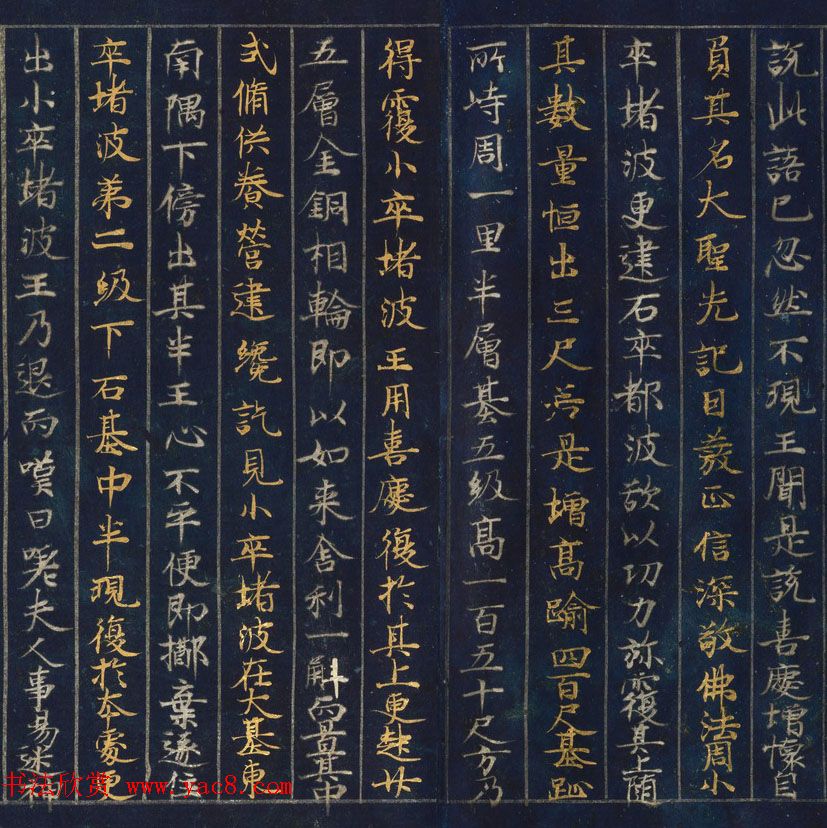 説此語已忽然不現王聞是説喜慶增懷自
負其名大聖先記因發正信深敬佛法周小
卒堵波更建石卒都波欲以功力弥覆其上随
其數量恒出三尺若是增高踰四百尺基趾
所峙周一里半層基五級高一百五十尺方乃
得覆小卒堵波王用喜慶復於其上更起廿
五層金銅相輪即以如来舍利一斛而置其中
式修供養營建纔訖見小卒堵波在大基東
南隅下傍出其半王心不平便即擲棄遂住
卒堵波第二級下石基中半現復於本處更
出小卒堵波王乃退而嘆曰嗟夫人事易迷神
书法欣赏 www.yac8.com